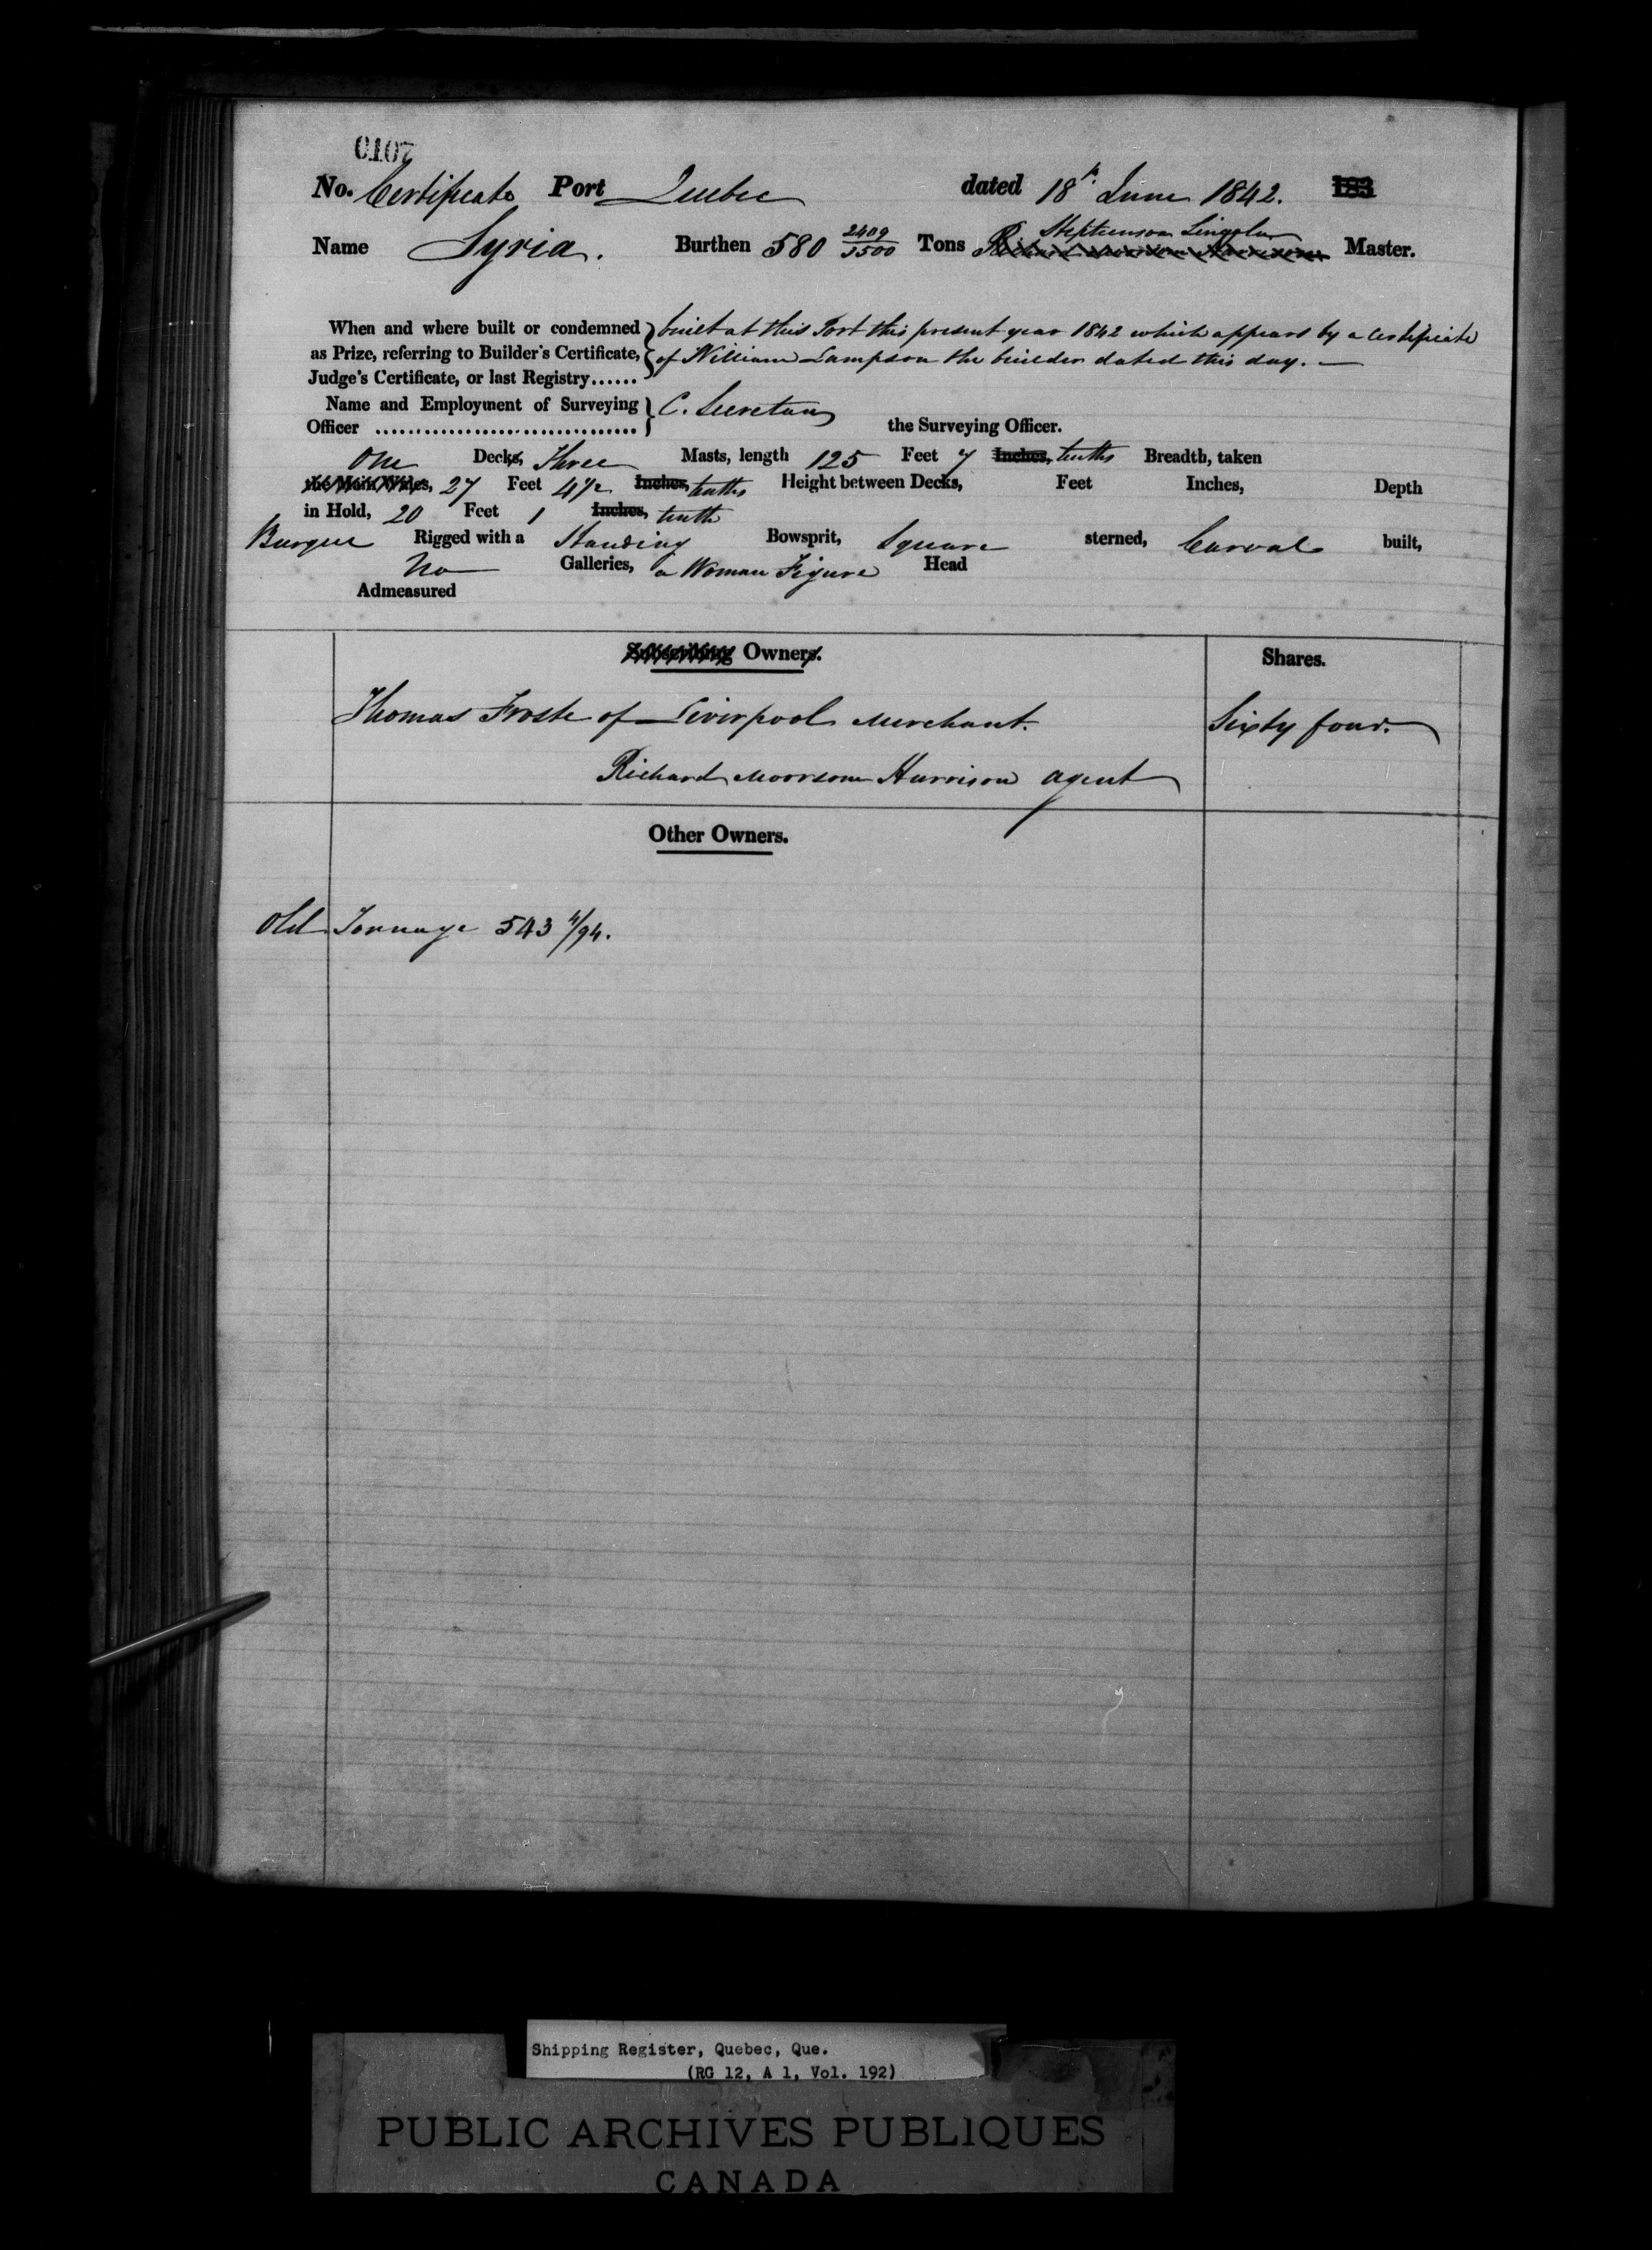 0107
No. Certificate Port Quebec dated 18th June 1842. 183
Stephenson Lingola
Name Syria. Burthen 580 2409/3500 Tons Richard Moorsom Harrison Master.
When and where built or condemned } built at this Port this present year 1842 which appears by a Certificate
as Prize, referring to Builder's Certificate, } of William Lampson the builder dated this day. —
Judge's Certificate, or last Registry......
Name and Employment of Surveying } C. Secretan
Officer ................................ } the Surveying Officer.
One Decks, Three Masts, length 125 Feet 7 Inches, tenths Breadth, taken
the Main Wales, 27 Feet 4 1/2 Inches, tenths Height between Decks, Feet Inches, Depth
in Hold, 20 Feet 1 Inches, tenth
Barque Rigged with a Standing Bowsprit, Square sterned, Carval built,
No Galleries, a Woman Figure Head
Admeasured
Subscribing Owners. Shares.
Thomas Froste of Liverpool Merchant. Sixty four.
Richard Moorsom Harrison agent
Other Owners.
Old Tonnage 543 4/94.
Shipping Register, Quebec, Que.
(RG 12, A 1, Vol. 192)
PUBLIC ARCHIVES PUBLIQUES
CANADA